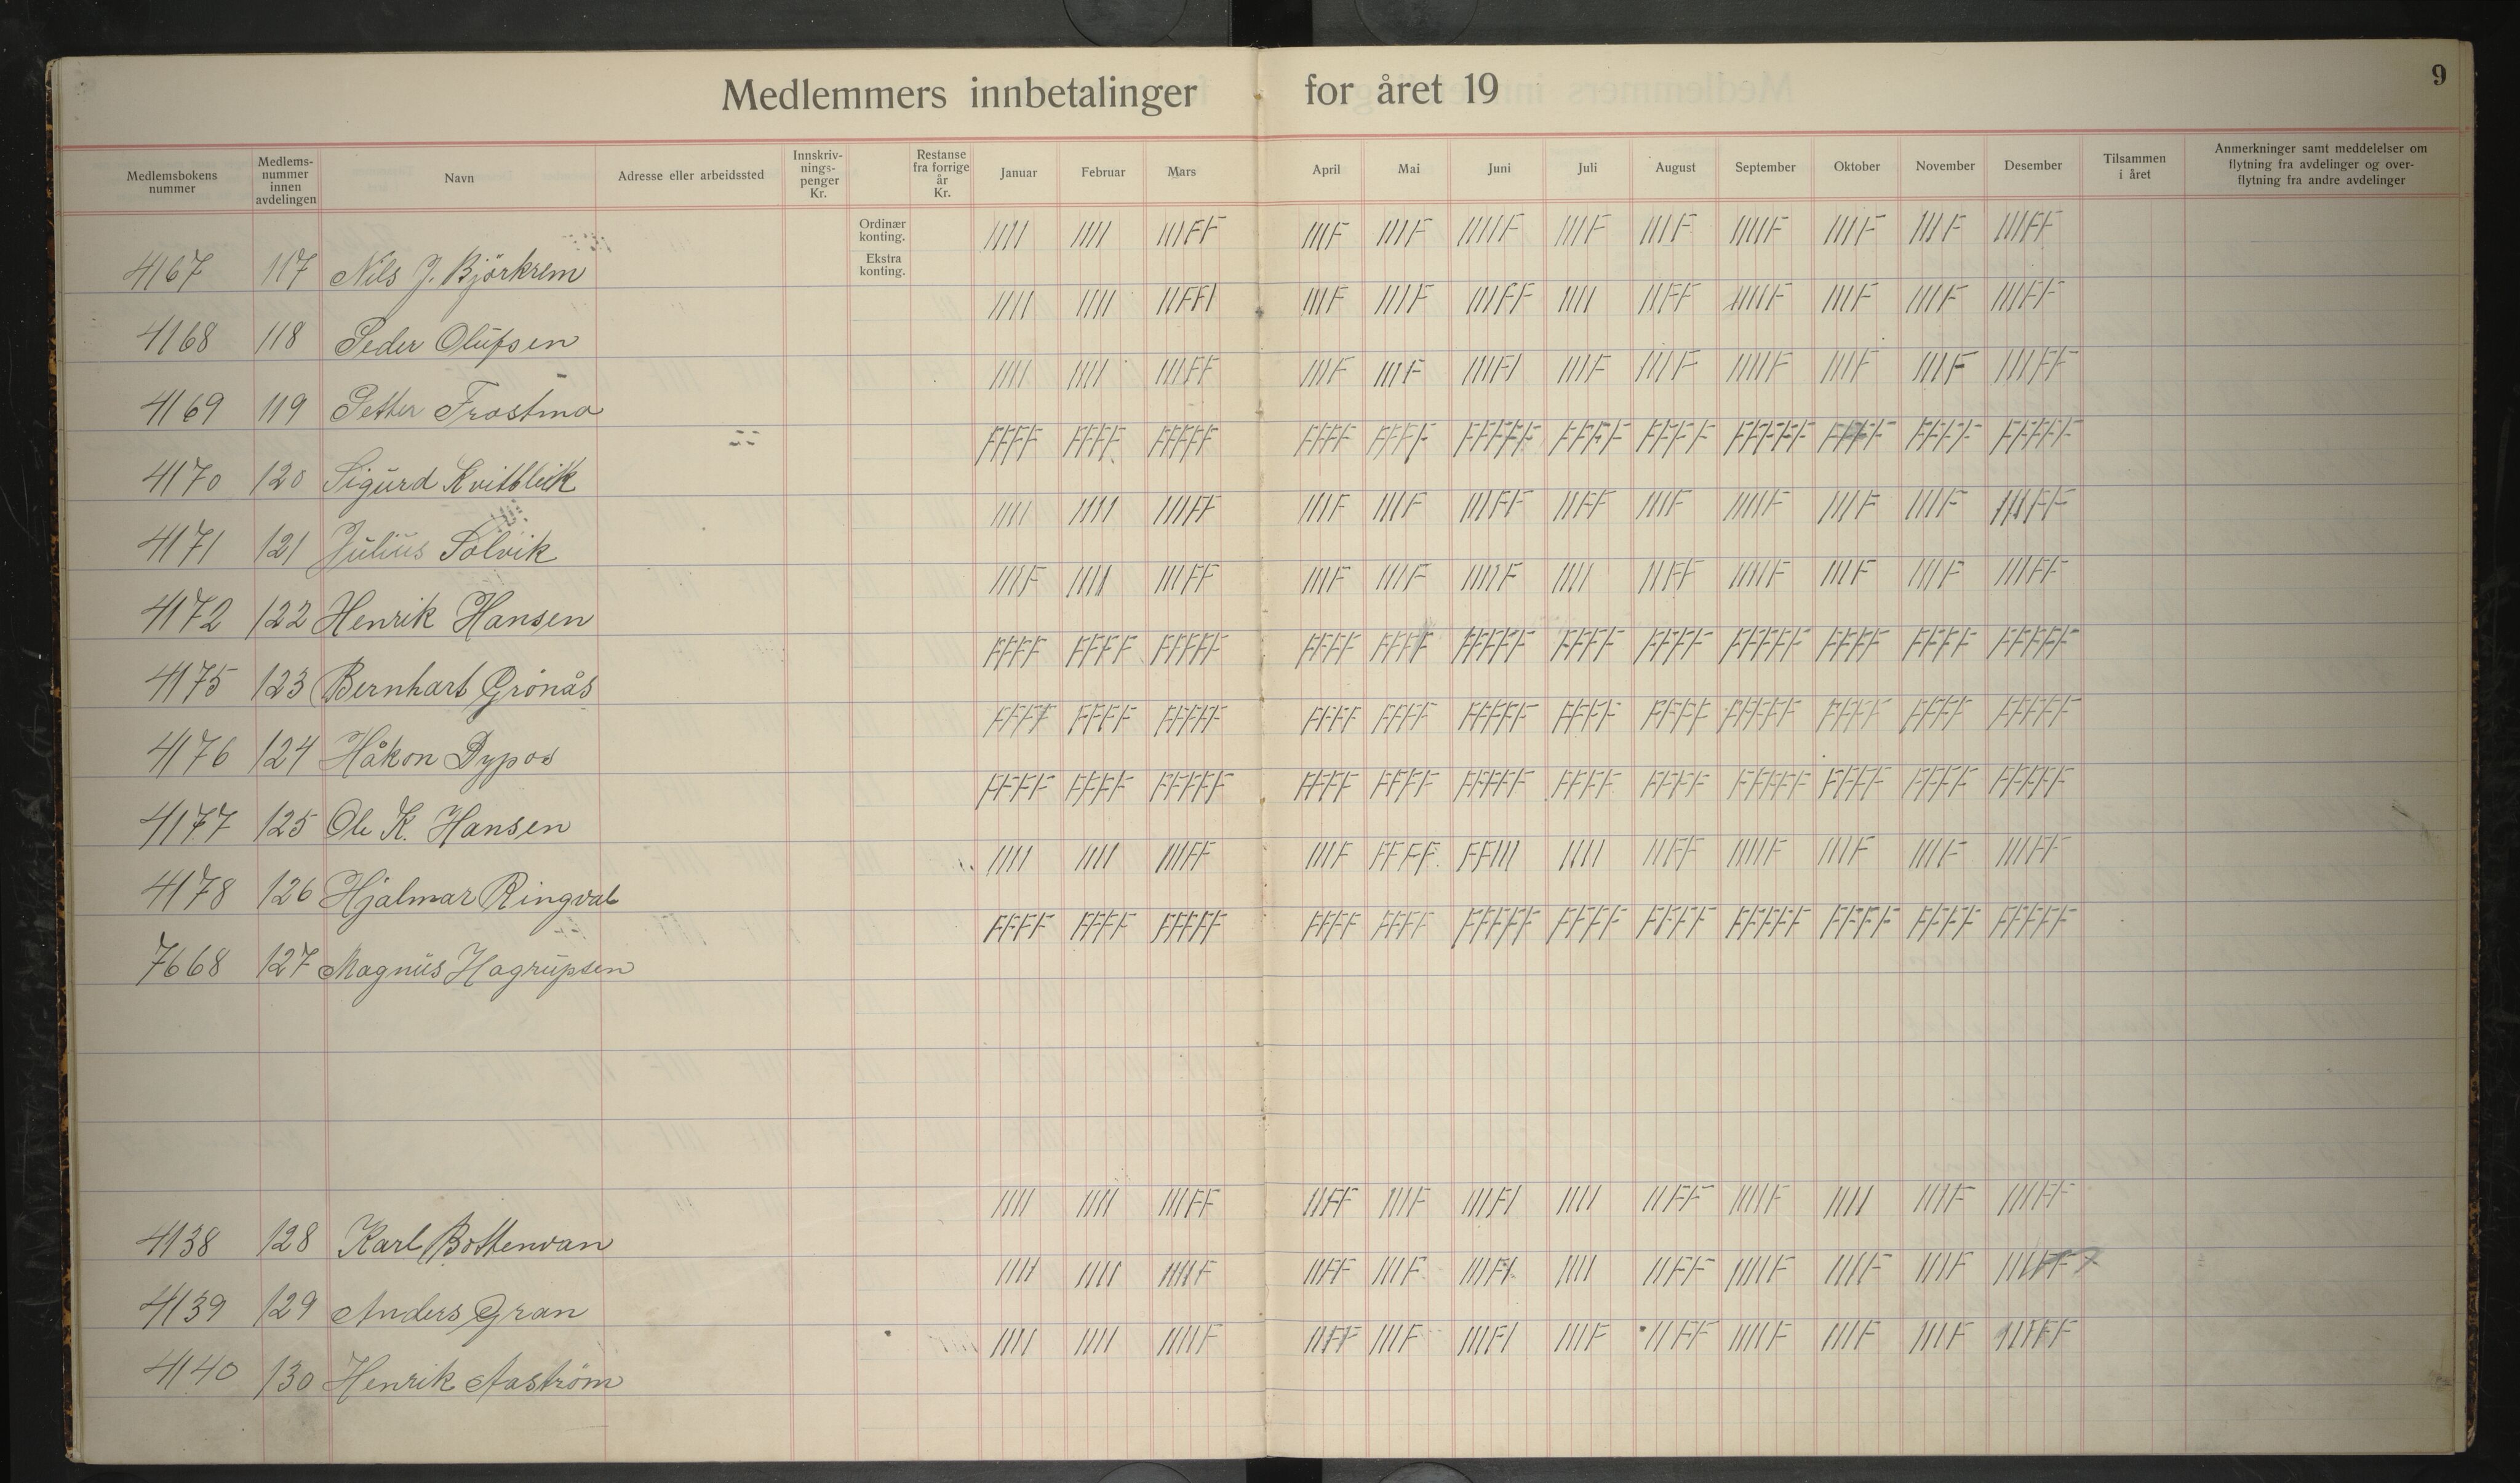 Medlemmers innbetalinger for året 19
9
Medlemsbokens nummer
Medlems-nummer innen avdelingen
Navn
Adresse eller arbeidssted
Innskriv-nings-penger Kr.
Restanse fra forrige år Kr.
Januar
Februar
Mars
April
Mai
Juni
Juli
August
September
Oktober
November
Desember
Tilsammen i året
Anmerkninger samt meddelelser om flytning fra avdelinger og over-flytning fra andre avdelinger
Ordinær konting.
Ekstra konting.
4167 117 Nils J. Björkrem IIII IIII IIIFF IIIF IIIF IIIIF IIIF IIIF IIIIF IIIF IIIF IIIFF
4168 118 Peder Olufsen IIII IIII IIFFI IIIF IIIF IIIFF IIII IIFF IIIIF IIIF IIIF IIIFF
4169 119 Petter Frostmo IIII IIII IIIFF IIIF IIIF IIIFI IIIF IIIF IIIIF IIIF IIIF IIIFF
4170 120 Sigurd Kvitblik FFFF FFFF FFFFF FFFF FFFF FFFFF FFFF FFFF FFFFF FFFF FFFF FFFFF
4171 121 Julius Solvik IIII IIII IIIFF IIIF IIIF IIIFF IIFF IIIF IIIIF IIIF IIIF IIIFF
4172 122 Henrik Hansen IIIF IIII IIIFF IIIF IIIF IIIIF IIII IIFF IIIIF IIIF IIIF IIIFF
4175 123 Bernhart Grönås FFFF FFFF FFFFF FFFF FFFF FFFFF FFFF FFFF FFFFF FFFF FFFF FFFFF
4176 124 Håkon Dypos FFFF FFFF FFFFF FFFF FFFF FFFFF FFFF FFFF FFFFF FFFF FFFF FFFFF
4177 125 Ole K. Hansen FFFF FFFF FFFFF FFFF FFFF FFFFF FFFF FFFF FFFFF FFFF FFFF FFFFF
4178 126 Hjalmar Ringval IIII IIII IIIFF IIIF FFFF FFIII IIII IIFF IIIIF IIIF IIIF IIIFF
7668 127 Magnus Hagrupsen FFFF FFFF FFFFF FFFF FFFF FFFFF FFFF FFFF FFFFF FFFF FFFF FFFFF
4138 128 Karl Bottenvan IIII IIII IIIFF IIFF IIIF IIIFI IIII IIFF IIIIF IIII IIIF IIIFF
4139 129 Anders Gran IIII IIII IIIIF IIFF IIIF IIIFI IIII IIFF IIIIF IIIF IIIF
4140 130 Henrik Aaström IIII IIII IIIIF IIFF IIIF IIIFI IIIF IIFF IIIIF IIIF IIIF IIIFF